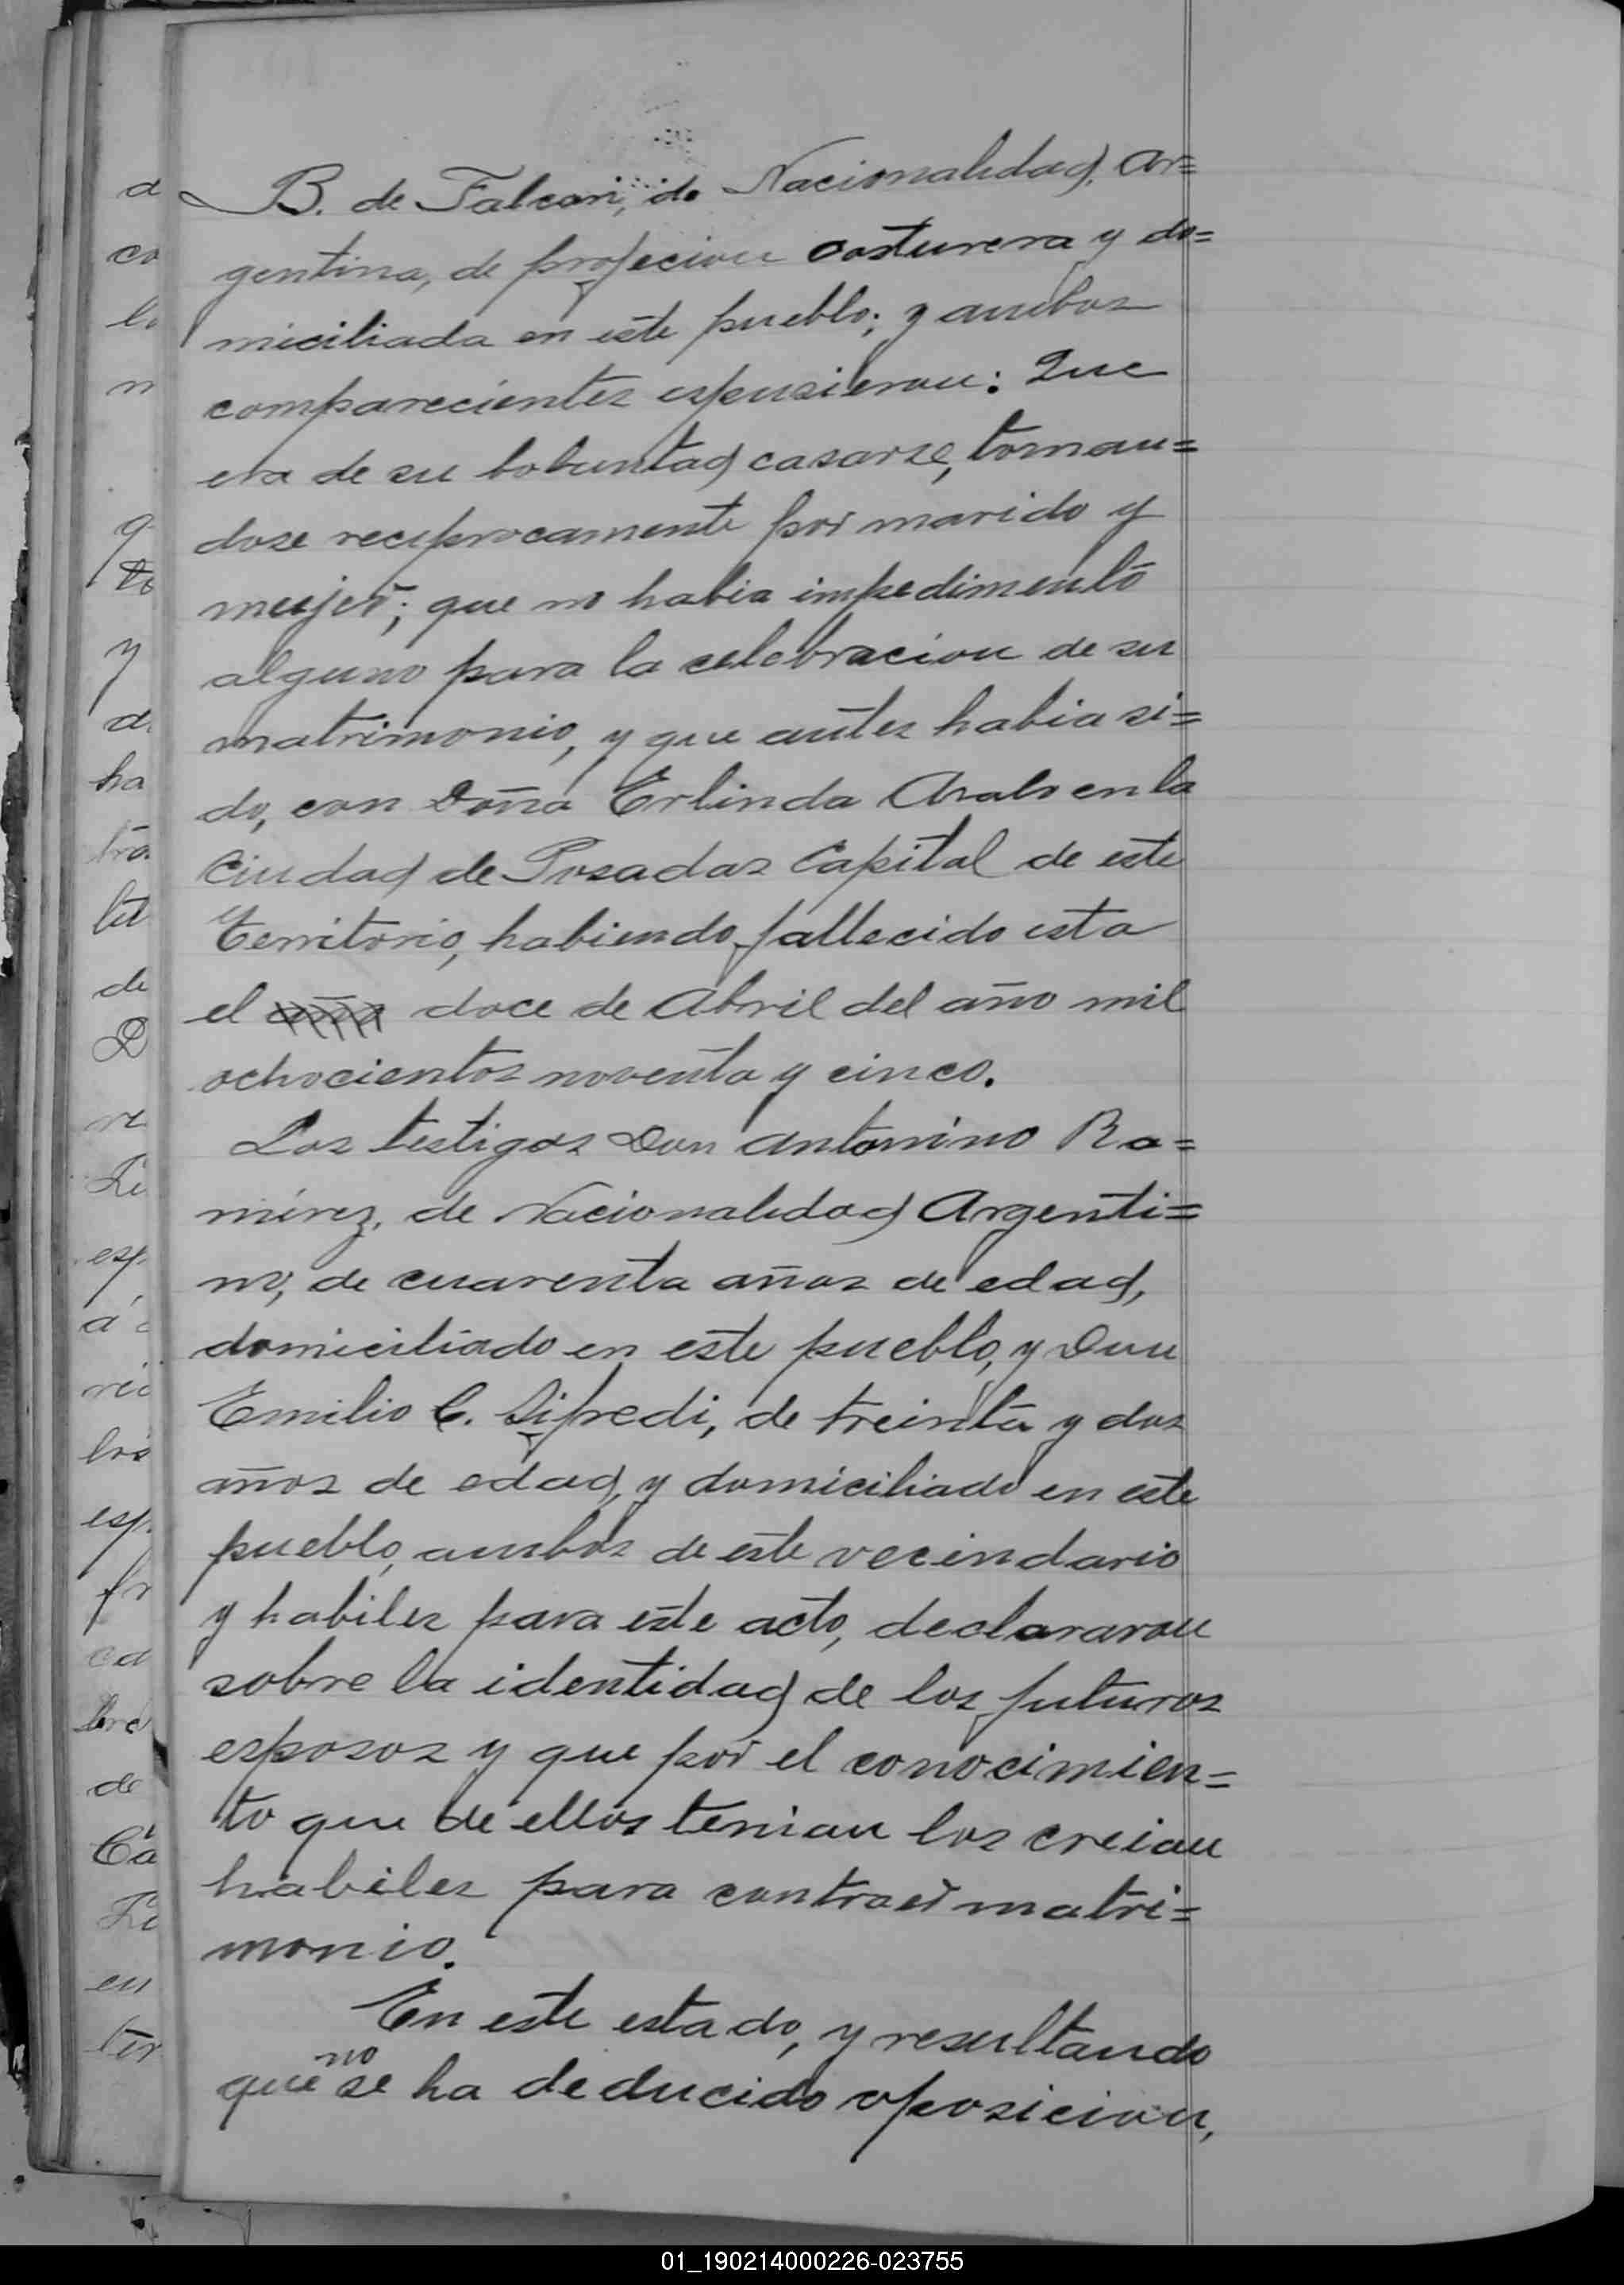 B. de Falcon, de Nacionalidad Ar=
gentina, de profecion costurera y do=
miciliada en este pueblo; y ambos
comparecientes espusieron: Que
era de su boluntad casarse, toman=
dose reciprocamente por marido y
mujer; que no habia impedimento
alguno para la celebracion de su
matrimonio, y que antes habia si=
do, con Doña Erlinda en la
Ciudad de Posadas Capital de este
Territorio, habiendo fallecido esta
el doce de Abril del año mil
ochocientos noventa y cinco.
Los testigos Don Antonino Ra=
mirez, de Nacionalidad Argenti=
no, de cuarenta años de edad,
domiciliado en este pueblo, y Don
Emilio C. Sifredi, de treinta y dos
años de edad, y domiciliado en este
pueblo, ambos de este vecindario
y habiles para este acto, declararon
sobre la identidad de los futuros
esposos y que por el conocimien=
to que de ellos tenian los creian
habiles para contraer matri=
monio.
En este estado, y resultando
que no se ha deducido oposicion,
01_190214000226-023755